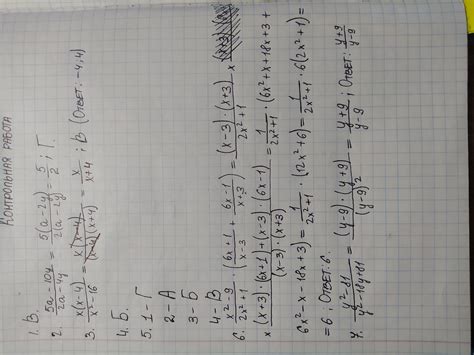 КОНТРОЛЬНАЯ РАБОТА
1. В.
2. (5a-10y)/(2a-4y) = 5(a-2y)/2(a-2y) = 5/2 ; Г.
3. x(x-4)/(x²-16) = x(x-4)/(x-4)(x+4) = x/(x+4) ; В (Ответ: -4; 4)
4. Б.
5. 1-Г
2-А
3-Б
4-В
6. (x²-9)/(2x²+1) · ((6x+1)/(x-3) + (6x-1)/(x+3)) = (x-3)·(x+3)/(2x²+1) ×
× ((x+3)·(6x+1)+(x-3)·(6x-1))/((x-3)·(x+3)) = 1/(2x²+1) · (6x²+x+18x+3+
6x²-x-18x+3) = 1/(2x²+1) · (12x²+6) = 1/(2x²+1) · 6(2x²+1) =
= 6 ; Ответ: 6.
7. (y²-81)/(y²-18y+81) = (y-9)·(y+9)/(y-9)² = (y+9)/(y-9) ; Ответ: (y+9)/(y-9)